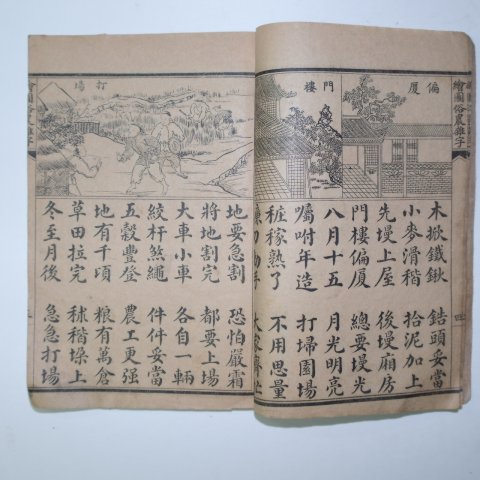 繪圖俗農雜字
偏厦
門樓
木掀鐵鍬 頭妥當
小麥滑稭 拾泥加上
先墁上屋 後墁廠房
門樓偏厦 總要墁光
八月十五 月光明亮
囑咐年造 打埽園場
稼熟了 不用思量
四
繪圖俗農雜字
打場
地要急割 恐怕嚴霜
將地割完 都要上場
大車小車 各自一輛
絞杆煞繩 件件妥當
五穀豐登 農工更强
地有千頃 粮有萬倉
草田拉完 秫稭垜上
冬至月後 急急打場